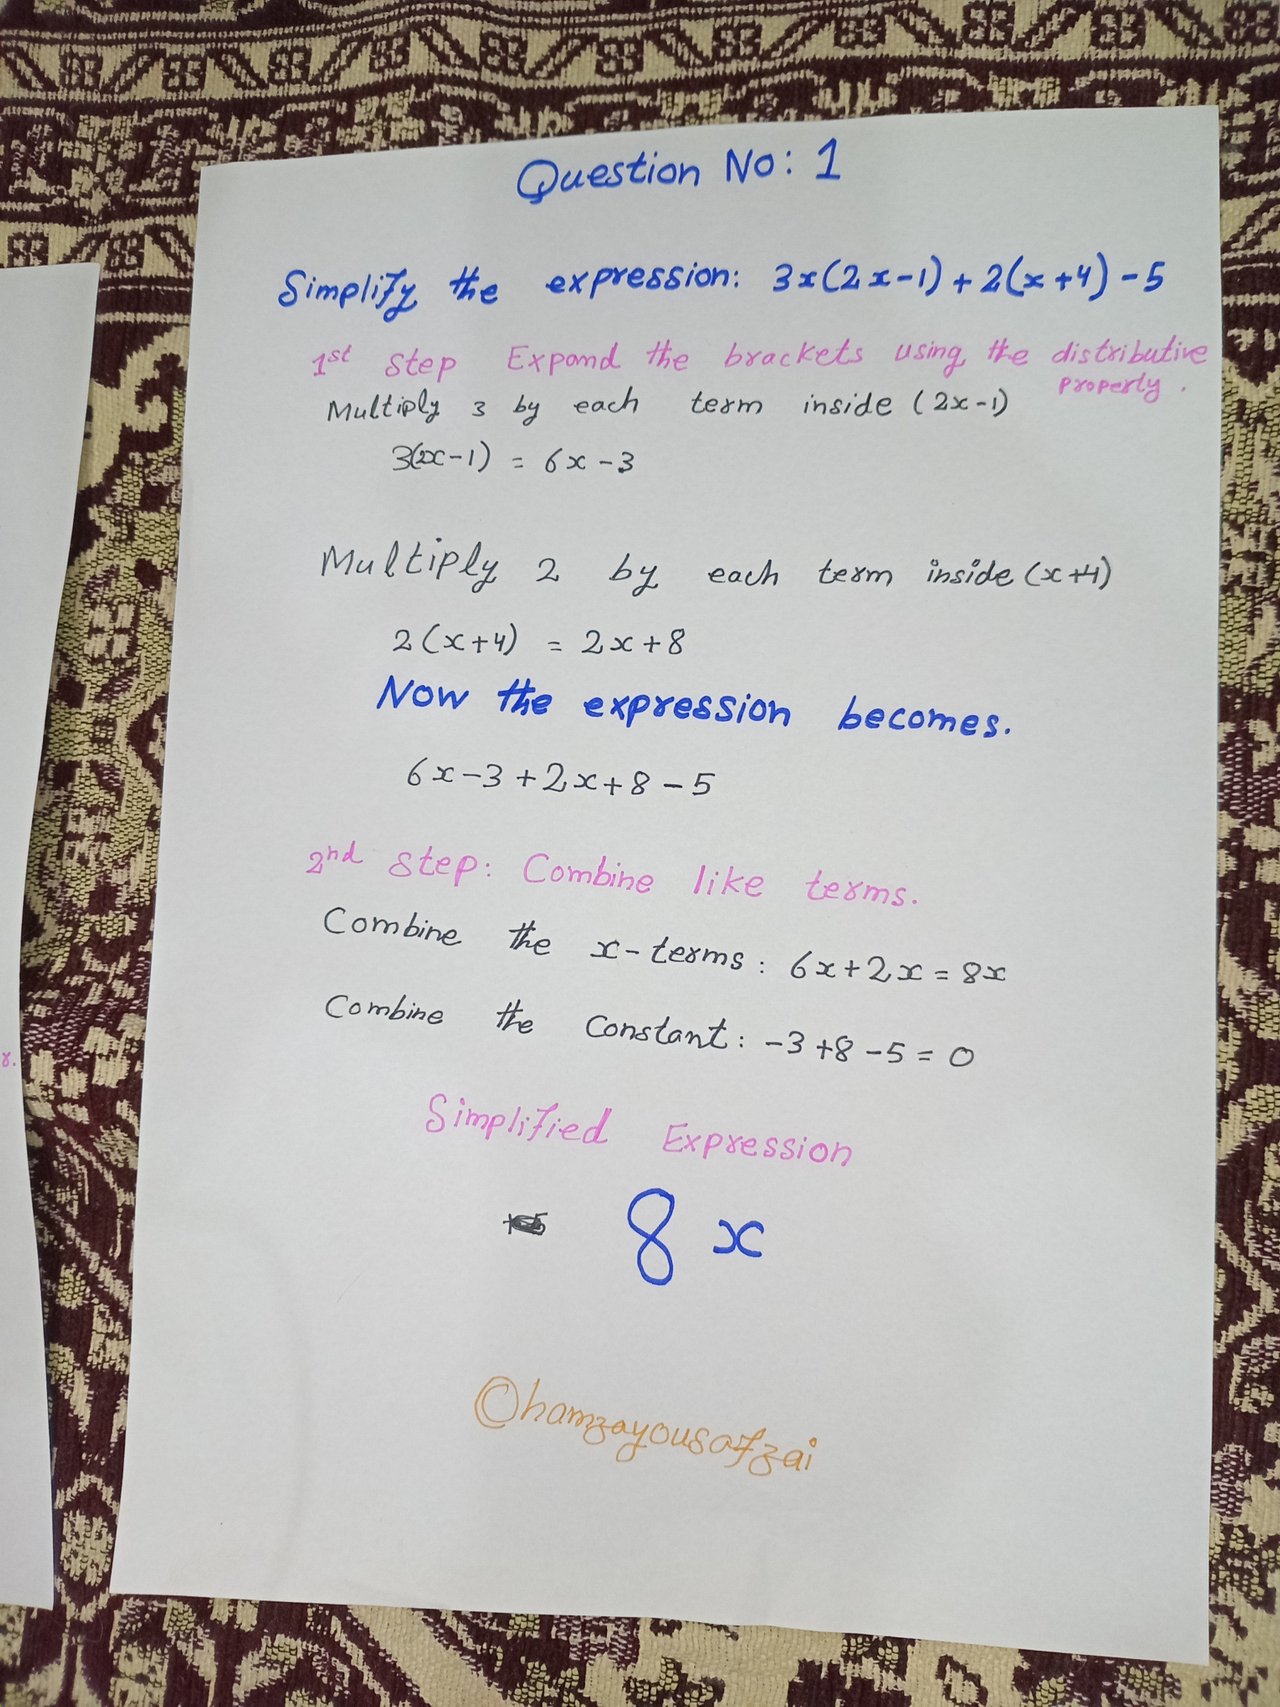 Question No: 1
Simplify the expression: 3x(2x-1)+2(x+4)-5
1st step Expand the brackets using the distributive
property.
Multiply 3 by each term inside (2x-1)
3(2x-1) = 6x-3
Multiply 2 by each term inside (x+4)
2(x+4) = 2x+8
Now the expression becomes.
6x-3+2x+8-5
2nd step: Combine like terms.
Combine the x-terms: 6x+2x=8x
Combine the Constant: -3+8-5=0
Simplified Expression
8x
©hamzayousafzai
8.